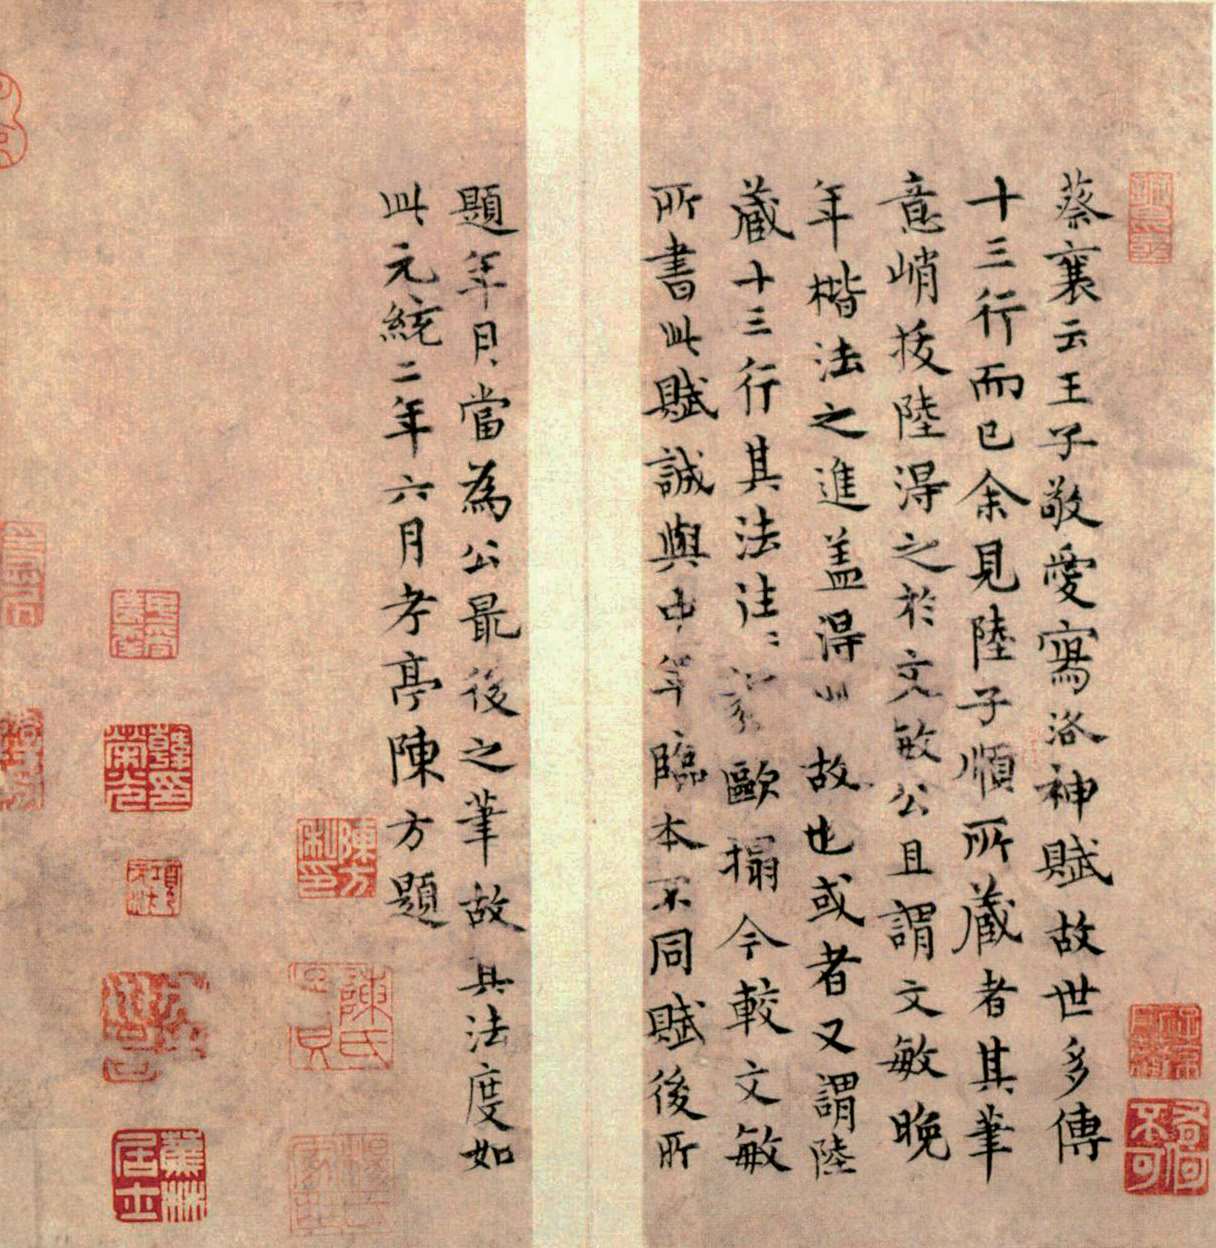 蔡襄云王子敬愛寫洛神賦故世多傳
十三行而已余見陸子順所藏者其筆
意峭拔陸得之於文敏公且謂文敏晚
年楷法之進蓋得此故也或者又謂陸
藏十三行其法往往類歐搨今較文敏
所書此賦誠與中年臨本不同賦後所
題年月當為公最後之筆故其法度如
此元統二年六月孝亭陳方題
陳方私印
陳氏
蕉林居士